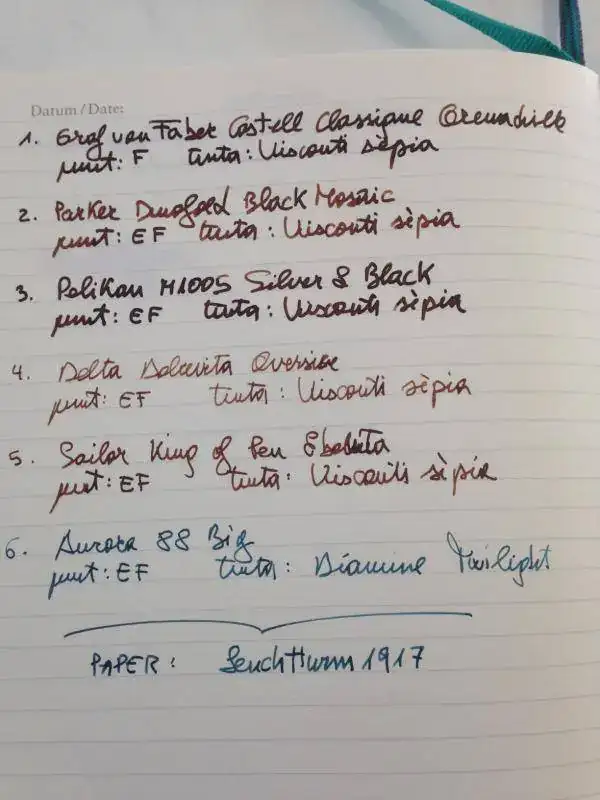 Datum / Date:
1. Graf von Faber Castell Classique Grenadilla
punt: F tinta: Visconti sèpia
2. Parker Duofold Black Mosaic
punt: EF tinta: Visconti sèpia
3. Pelikan M1005 Silver & Black
punt: EF tinta: Visconti sèpia
4. Delta Dolcevita Oversize
punt: EF tinta: Visconti sèpia
5. Sailor King of Pen Ebonita
punt: EF tinta: Visconti sèpia
6. Aurora 88 Big
punt: EF tinta: Diamine Twilight
PAPER: Leuchtturm 1917